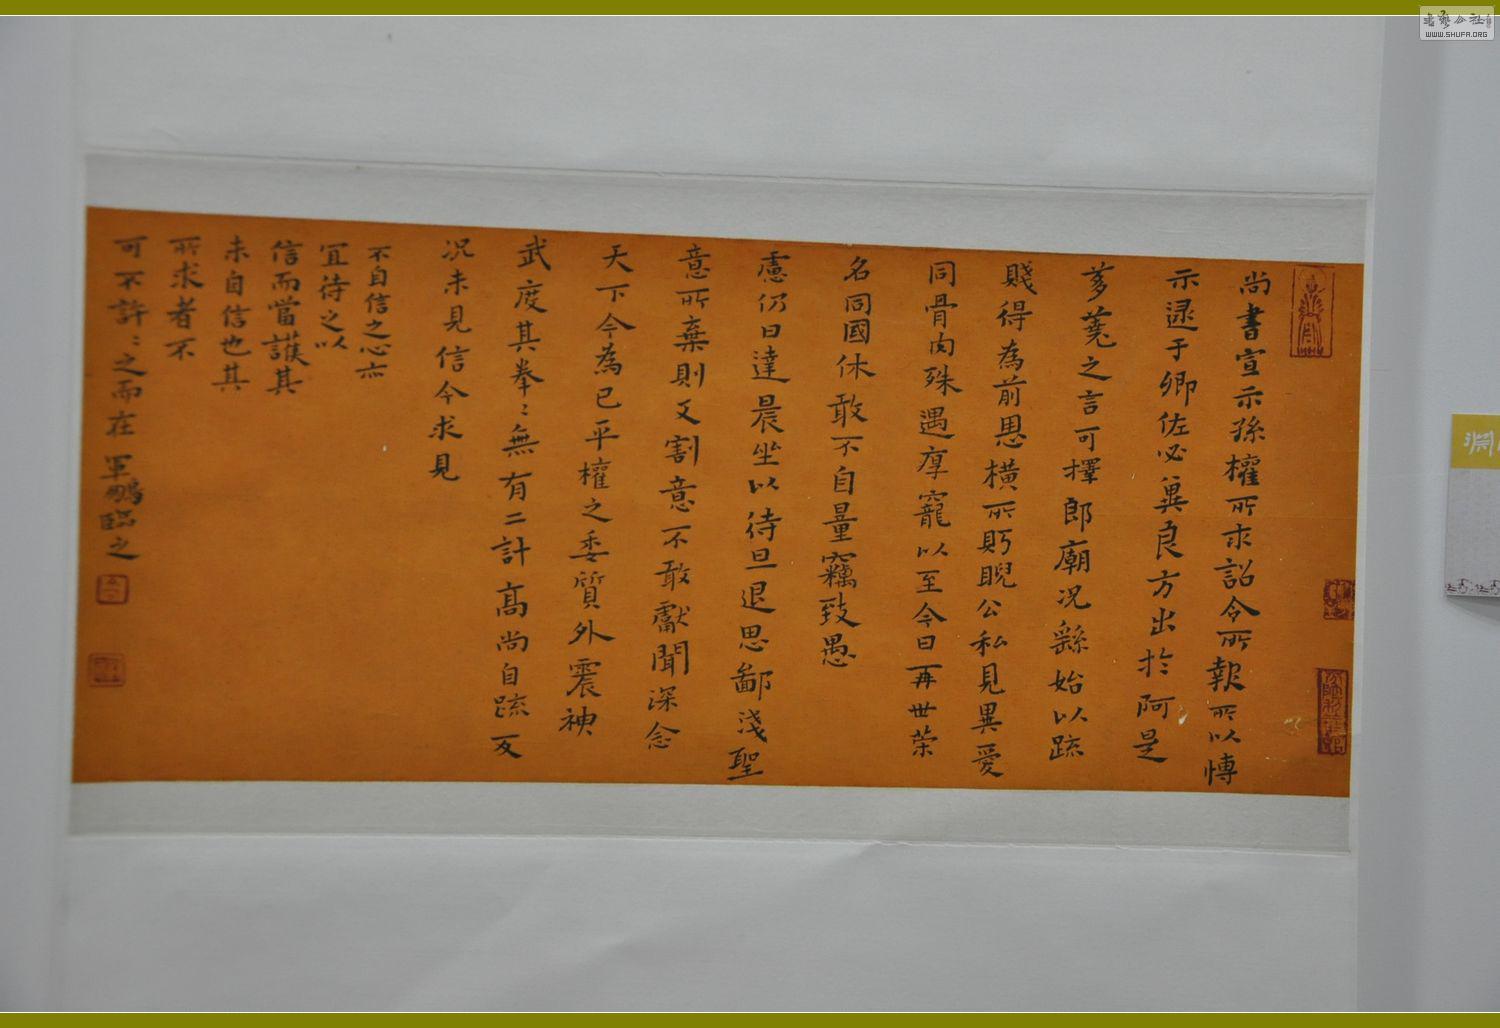 尚書宣示孫權所求詔令所報所以博
示逮于卿佐必冀良方出於阿是
芻蕘之言可擇郎廟況繇始以疏
賤得為前恩橫所眄睨公私見異愛
同骨肉殊遇厚寵以至今日再世榮
名同國休敢不自量竊致愚
慮仍日達晨坐以待旦退思鄙淺聖
意所棄則又割意不敢獻聞深念
天下今為已平權之委質外震神
武度其拳〻無有二計高尚自疏
況未見信今求見
不自信之心亦
宜待之以
信而當護其
未自信也其
所求者不
可不許〻之而在 軍鵬臨之
書藝公社
WWW.SHUFA.ORG